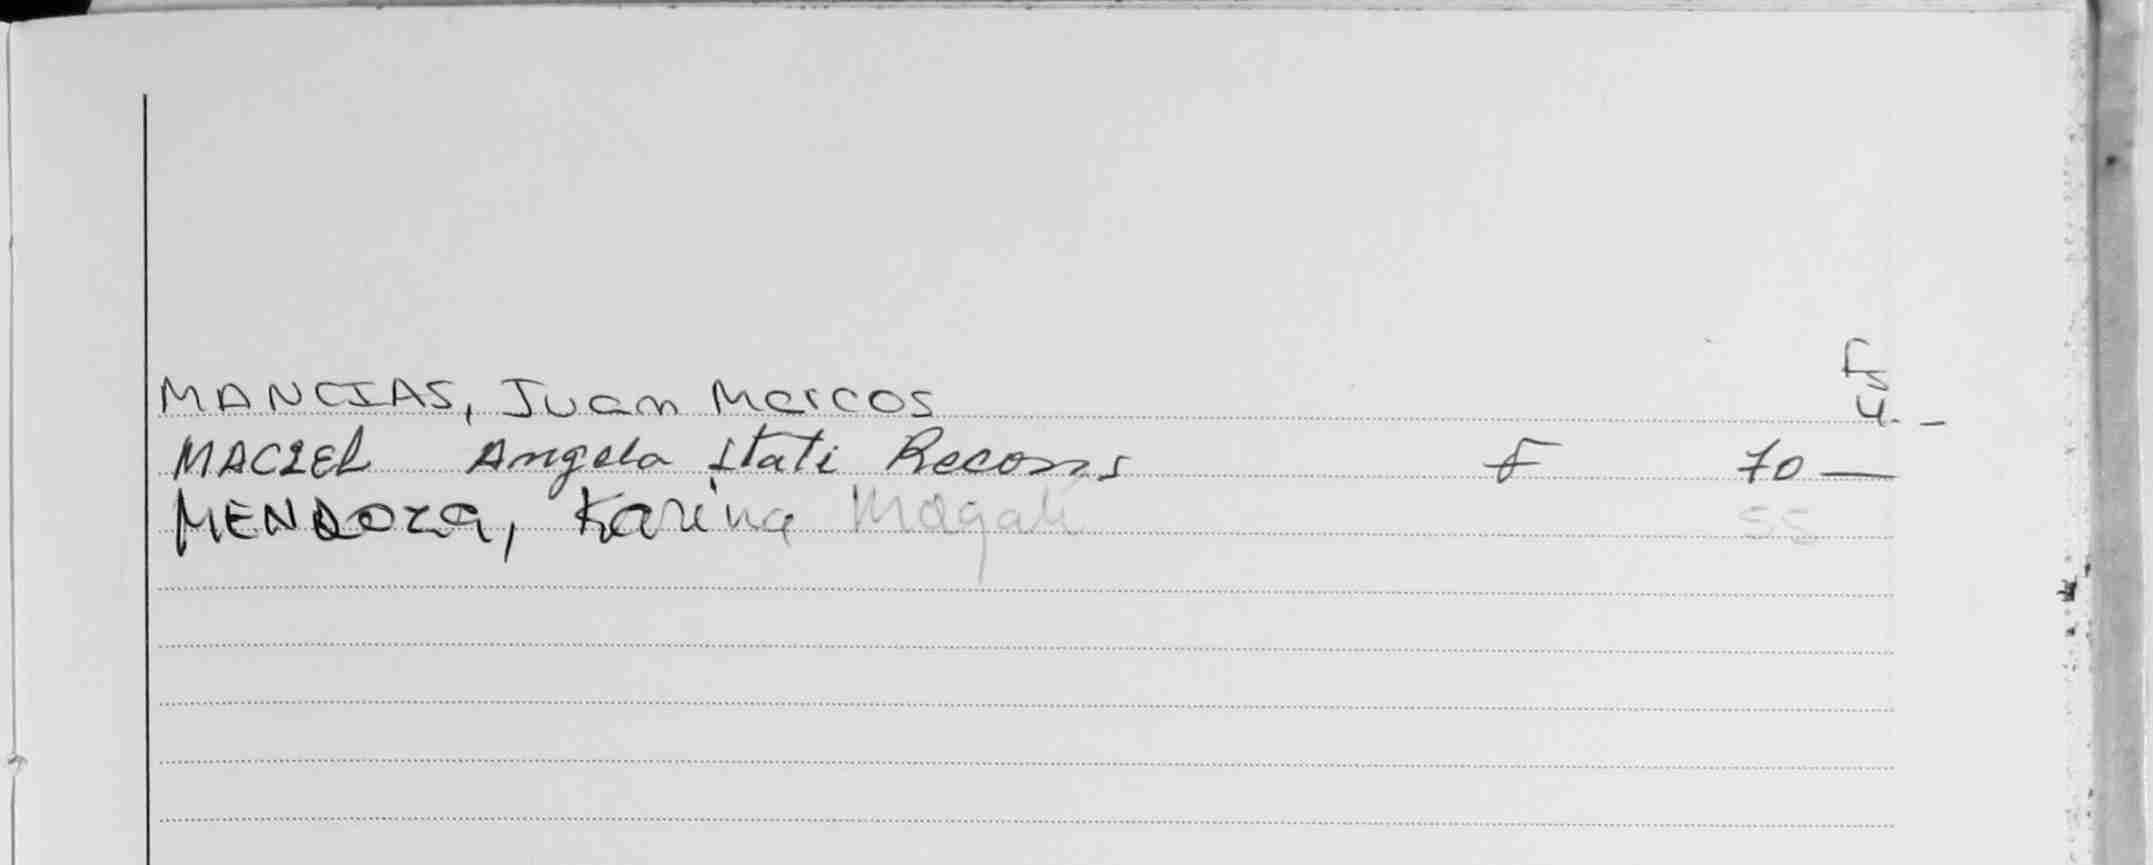 Fs
MANCIAS, Juan Marcos 4. —
MACIEL Angela Itati Recons F 70 —
MENDOZA, Karina Magali 55